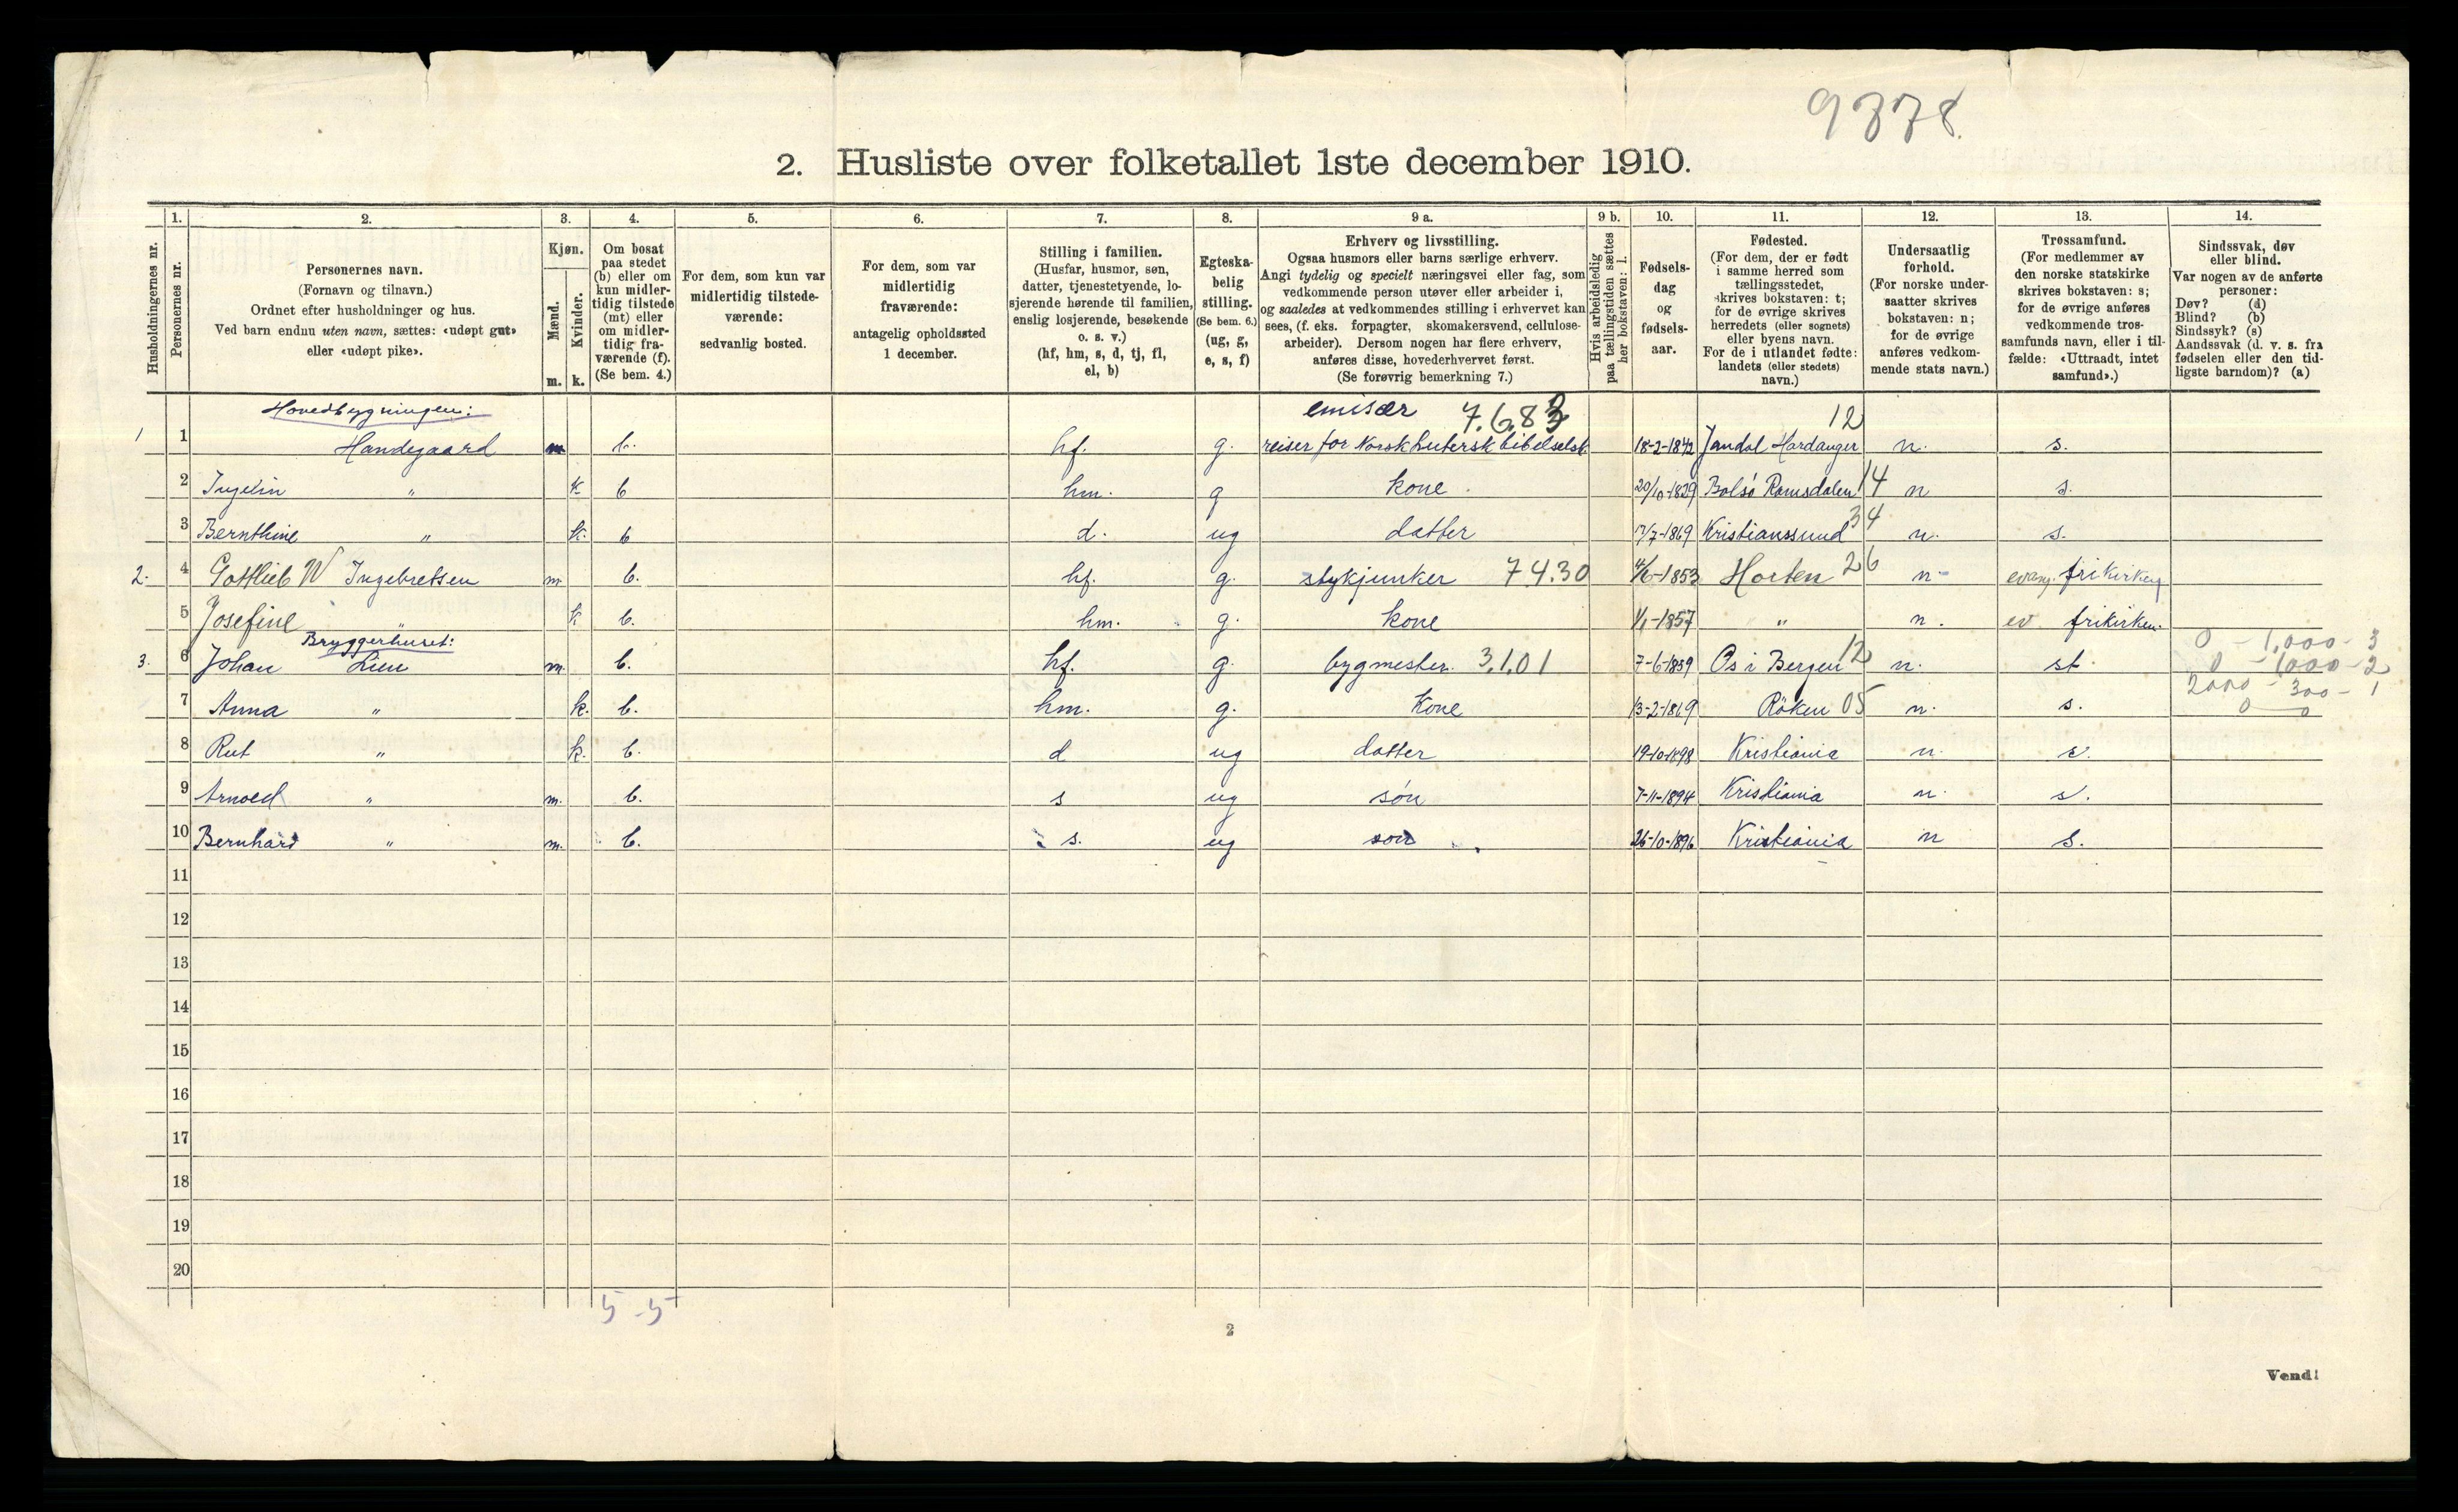 9878.
2. Husliste over folketallet 1ste december 1910.
Husholdningernes nr.
1. Personernes nr.
2. Personernes navn.
(Fornavn og tilnavn.)
Ordnet efter husholdninger og hus.
Ved barn endnu uten navn, sættes: «udøpt gut»
eller «udøpt pike».
3. Kjøn.
Mænd. m.
Kvinder. k.
4. Om bosat
paa stedet
(b) eller om
kun midler-
tidig tilstede
(mt) eller
om midler-
tidig fra-
værende (f).
(Se bem. 4.)
5. For dem, som kun var
midlertidig tilstede-
værende:
sedvanlig bosted.
6. For dem, som var
midlertidig
fraværende:
antagelig opholdssted
1 december.
7. Stilling i familien.
(Husfar, husmor, søn,
datter, tjenestetyende, lo-
sjerende hørende til familien,
enslig losjerende, besøkende
o. s. v.)
(hf, hm, s, d, tj, fl,
el, b)
8. Egteska-
belig
stilling.
(Se bem. 6.)
(ug, g,
e, s, f)
9 a. Erhverv og livsstilling.
Ogsaa husmors eller barns særlige erhverv.
Angi tydelig og specielt næringsvei eller fag, som
vedkommende person utøver eller arbeider i,
og saaledes at vedkommendes stilling i erhvervet kan
sees, (f. eks. forpagter, skomakersvend, cellulose-
arbeider). Dersom nogen har flere erhverv,
anføres disse, hovederhvervet først.
(Se forøvrig bemerkning 7.)
9 b. Hvis arbeidsledig
paa tællingstiden sættes
her bokstaven: l.
10. Fødsels-
dag
og
fødsels-
aar.
11. Fødested.
(For dem, der er født
i samme herred som
tællingsstedet,
skrives bokstaven: t;
for de øvrige skrives
herredets (eller sognets)
eller byens navn.
For de i utlandet fødte:
landets (eller stedets)
navn.)
12. Undersaatlig
forhold.
(For norske under-
saatter skrives
bokstaven: n;
for de øvrige
anføres vedkom-
mende stats navn.)
13. Trossamfund.
(For medlemmer av
den norske statskirke
skrives bokstaven: s;
for de øvrige anføres
vedkommende tros-
samfunds navn, eller i til-
fælde: «Uttraadt, intet
samfund».)
14. Sindssvak, døv
eller blind.
Var nogen av de anførte
personer:
Døv? (d)
Blind? (b)
Sindssyk? (s)
Aandssvak (d. v. s. fra
fødselen eller den tid-
ligste barndom)? (a)
Hovedbygningen: emisær 7.6.83 12
1 1 Handegaard m b. hf. g. reiser for Norsk Lutersk bibelselsk. 18-2-1842 Jondal Hardanger n. s.
2 Ingelin " k b hm. g kone. 20/10-1829 Bolsö Romsdalen 14 n s.
3 Bernthine " k. b d. ug datter 17/7-1869 Kristianssund 34 n. s.
2. 4 Gottlieb W Ingebretsen m. b. hf. g. stykjunker 74.30 4/6-1853 Horten 26 n- evang. frikirken
5 Josefine " k b. hm. g. kone 1/1-1857 " n. ev frikirken.
Bryggerhuset:
0 - 1,000 - 3
3. 6 Johan Lien m. b. hf. g. bygmester 3.1.01 7-6-1859 Os i Bergen 12 n. st. 0 - 1000 - 2
2000 - 300 - 1
7 Anna " k. b. hm. g. Kone 13-2-1869 Röken 05 n. s. 0 0
8 Rut " k. b. d ug datter 19-10-1898 Kristiania n. s.
9 Arnold " m. b. s ug søn 7-11-1894 Kristiania n. s.
10 Bernhard " m. b. s. ug søn 26-10-1896 Kristiania n s.
11
12
13
14
15
16
17
18
19
20
5-5
2
Vend!